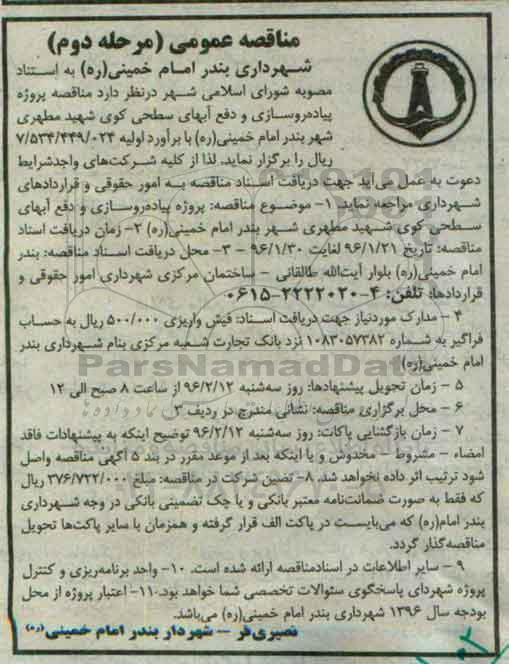 مناقصه عمومی (مرحله دوم)
شهرداری بندر امام خمینی(ره) به استناد
مصوبه شورای اسلامی شهر درنظر دارد مناقصه پروژه
پیاده‌روسازی و دفع آبهای سطحی کوی شهید مطهری
شهر بندر امام خمینی(ره) با برآورد اولیه ۷/۵۳۴/۴۴۹/۰۲۴
ریال را برگزار نماید. لذا از کلیه شرکت‌های واجدشرایط
دعوت به عمل می‌آید جهت دریافت اسناد مناقصه به امور حقوقی و قراردادهای
شهرداری مراجعه نماید. ۱- موضوع مناقصه: پروژه پیاده‌روسازی و دفع آبهای
سطحی کوی شهید مطهری شهر بندر امام خمینی(ره) ۲- زمان دریافت اسناد
مناقصه: تاریخ ۹۶/۱/۲۱ لغایت ۹۶/۱/۳۰ - ۳- محل دریافت اسناد مناقصه: بندر
امام خمینی(ره) بلوار آیت‌الله طالقانی - ساختمان مرکزی شهرداری امور حقوقی و
قراردادها: تلفن: ۴-۲۲۲۲۰۲۰-۰۶۱۵
۴ - مدارک موردنیاز جهت دریافت اسناد: فیش واریزی ۵۰۰/۰۰۰ ریال به حساب
فراگیر به شماره ۱۰۸۳۰۵۷۳۸۲ نزد بانک تجارت شعبه مرکزی بنام شهرداری بندر
امام خمینی(ره)
ParsNamadData
۵ - زمان تحویل پیشنهادها: روز سه‌شنبه ۹۶/۲/۱۲ از ساعت ۸ صبح الی ۱۲
۶ - محل برگزاری مناقصه: نشانی مندرج در ردیف ۳
۷ - زمان بازگشایی پاکات: روز سه‌شنبه ۹۶/۲/۱۲ توضیح اینکه به پیشنهادات فاقد
امضاء - مشروط - مخدوش و یا اینکه بعد از موعد مقرر در بند ۵ آگهی مناقصه واصل
شود ترتیب اثر داده نخواهد شد. ۸- تضمین شرکت در مناقصه: مبلغ ۳۷۶/۷۲۲/۰۰۰ ریال
که فقط به صورت ضمانت‌نامه معتبر بانکی و یا چک تضمینی بانکی در وجه شهرداری
بندر امام(ره) که می‌بایست در پاکت الف قرار گرفته و همزمان با سایر پاکت‌ها تحویل
مناقصه‌گذار گردد.
۹ - سایر اطلاعات در اسنادمناقصه ارائه شده است. ۱۰- واحد برنامه‌ریزی و کنترل
پروژه شهردای پاسخگوی سئوالات تخصصی شما خواهد بود.۱۱- اعتبار پروژه از محل
بودجه سال ۱۳۹۶ شهرداری بندر امام خمینی(ره) می‌باشد.
نصیری‌فر - شهردار بندر امام خمینی(ره)